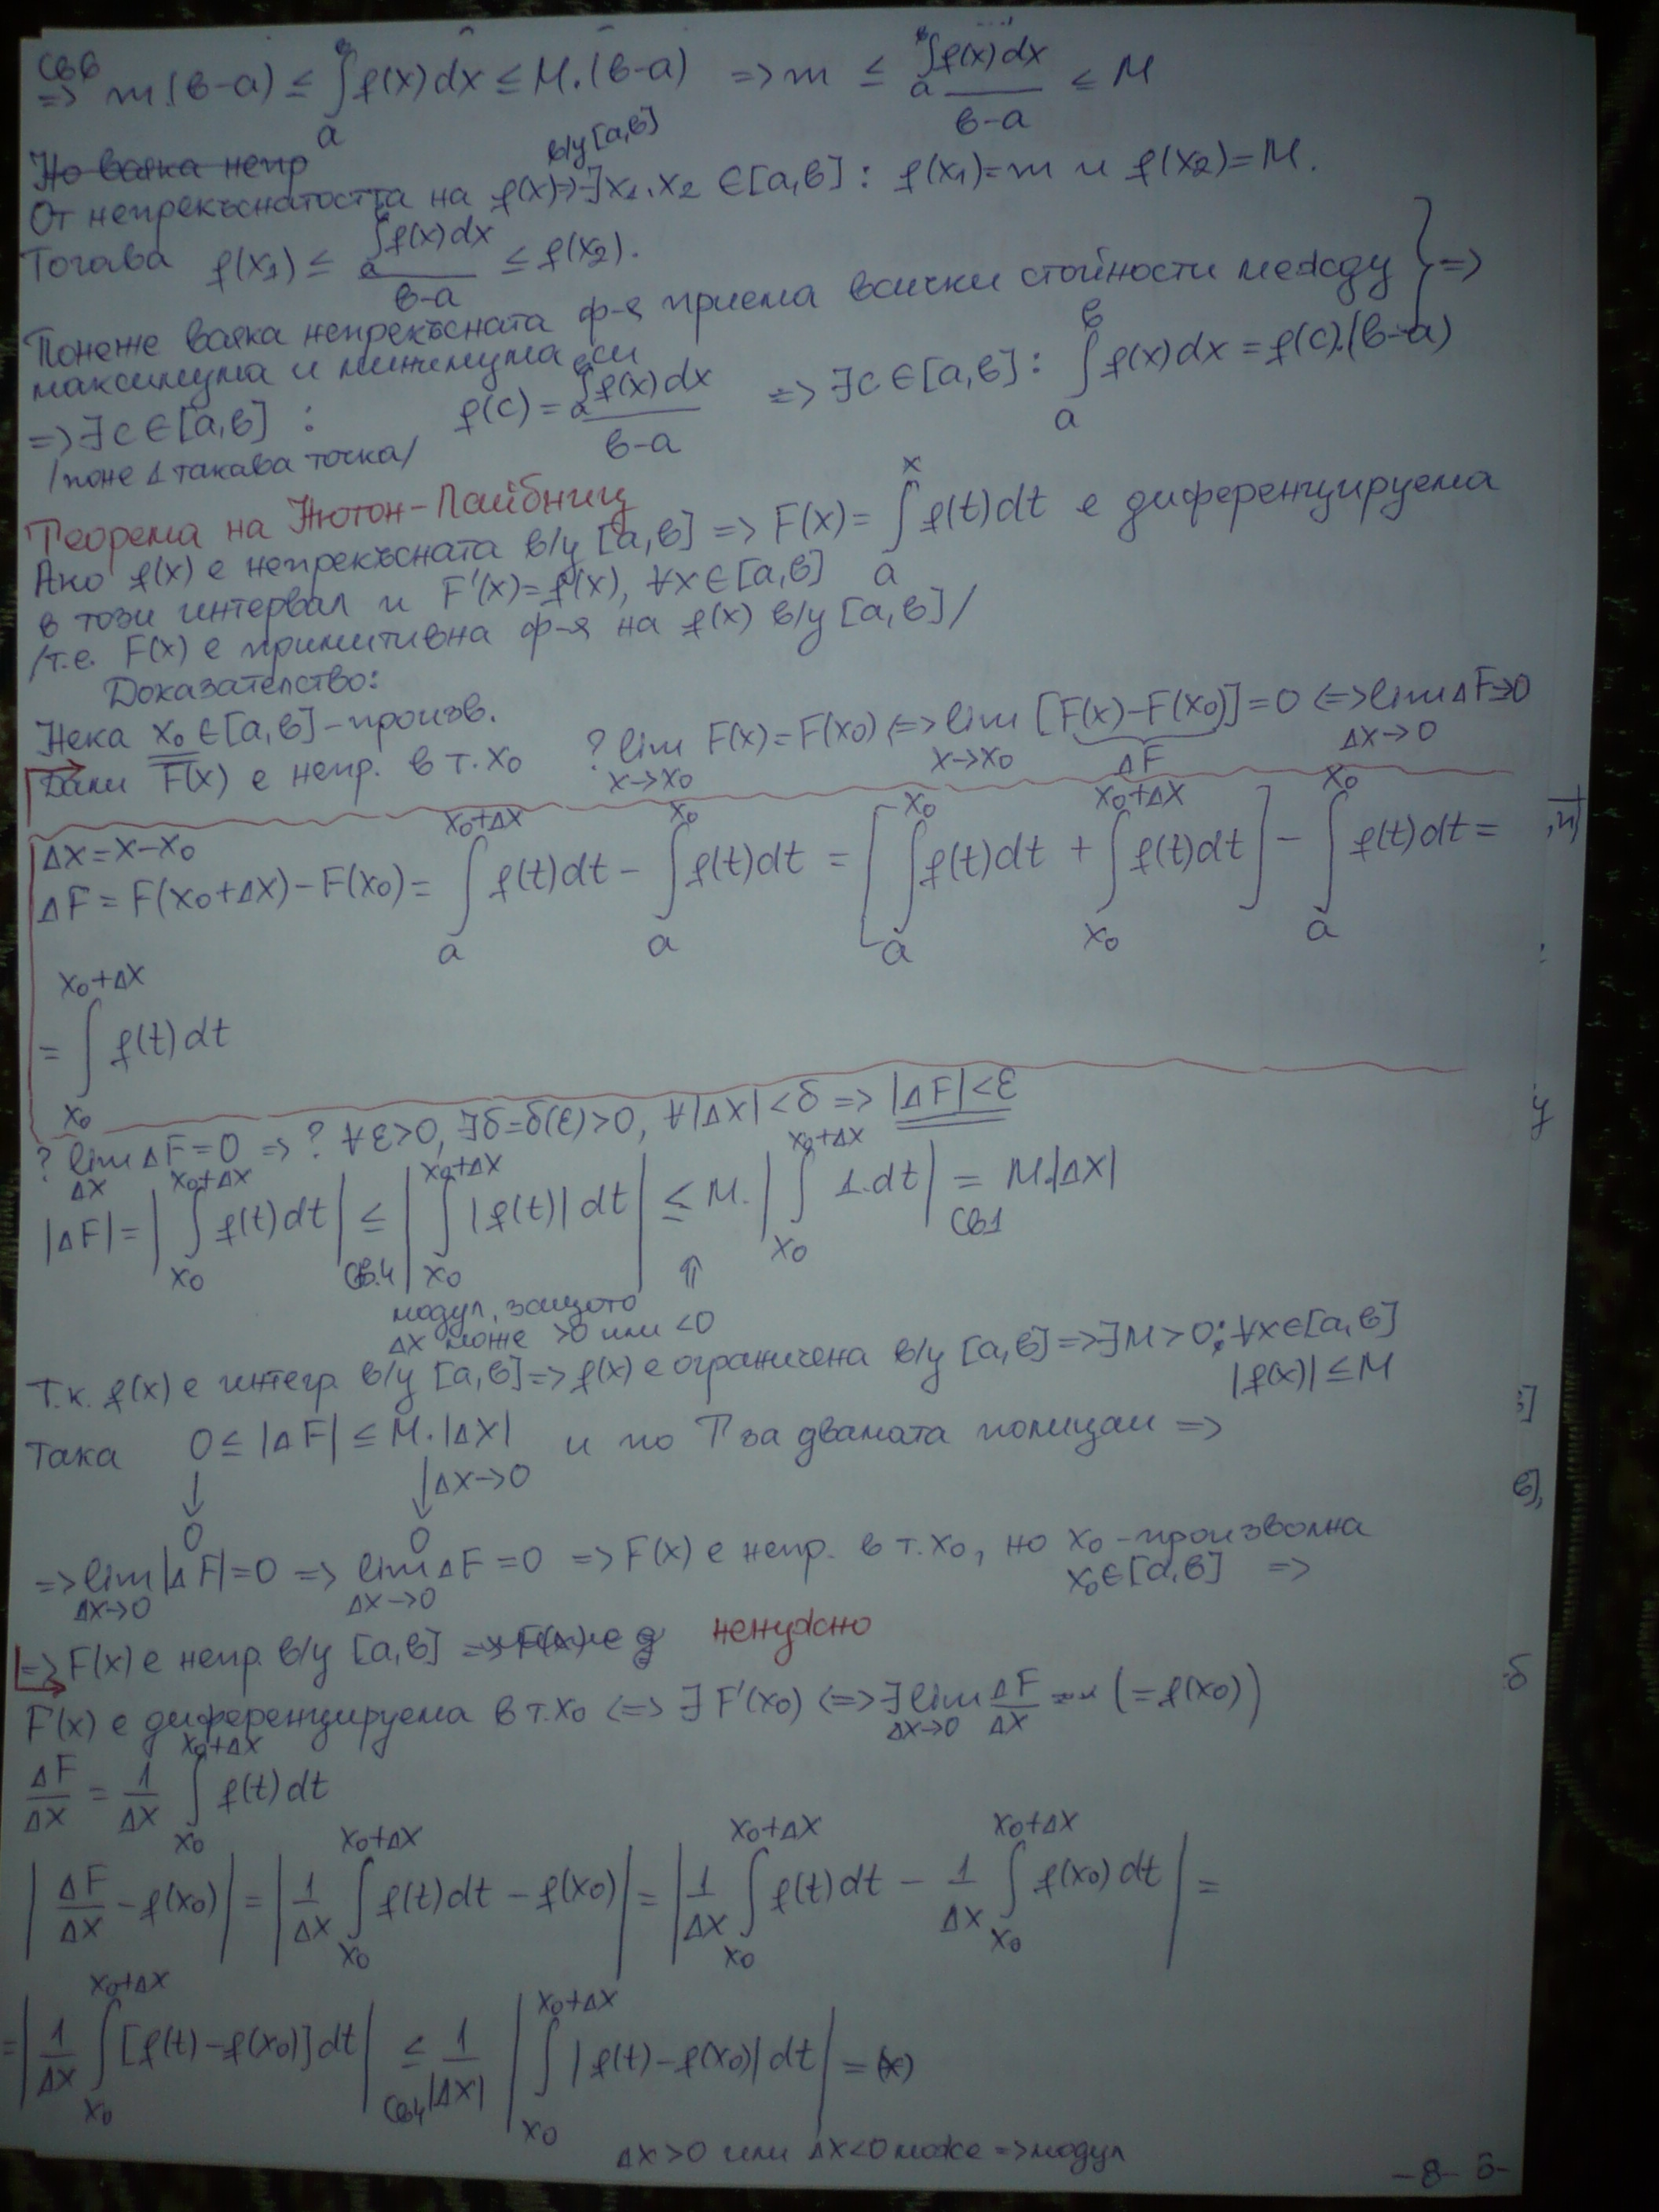 Св6
=> m(в-a) ≤ ∫ₐᵇ f(x)dx ≤ M.(в-a) => m ≤ ∫ₐᵇ f(x)dx / (в-a) ≤ M
Но всяка непр
в/у [a,в]
От непрекъснатостта на f(x) => ∃x₁,x₂ ∈[a,в] : f(x₁)=m и f(x₂)=M.
Тогава f(x₁) ≤ ∫ₐ f(x)dx / (в-a) ≤ f(x₂).
Понеже всяка непрекъсната ф-я приема всички стойности между } =>
максимума и минимума си
=> ∃c∈[a,в] : f(c) = ∫ₐ f(x)dx / (в-a) => ∃c∈[a,в] : ∫ₐᵇ f(x)dx = f(c).(в-a)
/поне 1 такава точка/
Теорема на Нютон-Лайбниц
Ако f(x) е непрекъсната в/у [a,в] => F(x) = ∫ₐˣ f(t)dt е диференцируема
в този интервал и F'(x)=f(x), ∀x∈[a,в]
/т.е. F(x) е примитивна ф-я на f(x) в/у [a,в]/
Доказателство:
Нека x₀∈[a,в]-произв.
Дали F(x) е непр. в т. x₀ ? lim_{x→x₀} F(x)=F(x₀) <=> lim_{x→x₀} [F(x)-F(x₀)]=0 <=> lim_{Δx→0} ΔF=0
ΔF
Δx = x-x₀
ΔF = F(x₀+Δx)-F(x₀) = ∫ₐ^{x₀+Δx} f(t)dt - ∫ₐ^{x₀} f(t)dt = [∫ₐ^{x₀} f(t)dt + ∫_{x₀}^{x₀+Δx} f(t)dt] - ∫ₐ^{x₀} f(t)dt =
= ∫_{x₀}^{x₀+Δx} f(t)dt
? lim_{Δx} ΔF=0 => ? ∀ε>0, ∃δ=δ(ε)>0, ∀|Δx|<δ => |ΔF|<ε
|ΔF| = |∫_{x₀}^{x₀+Δx} f(t)dt| ≤ |∫_{x₀}^{x₀+Δx} |f(t)|dt| ≤ M.|∫_{x₀}^{x₀+Δx} 1.dt| = M.|Δx|
Св.4 ⇑ Св1
модул, защото
Δx може >0 или <0
Т.к. f(x) е интегр. в/у [a,в] => f(x) е ограничена в/у [a,в] => ∃M>0: ∀x∈[a,в]
|f(x)| ≤ M
Така 0 ≤ |ΔF| ≤ M.|Δx| и по Т за двамата полицаи =>
↓ ↓ Δx→0
0 0
=> lim_{Δx→0} |ΔF|=0 => lim_{Δx→0} ΔF=0 => F(x) е непр. в т. x₀, но x₀-произволна
x₀∈[a,в] =>
=> F(x) е непр. в/у [a,в] => F(x) е д ненужно
F(x) е диференцируема в т. x₀ <=> ∃ F'(x₀) <=> ∃ lim_{Δx→0} ΔF/Δx (=f(x₀))
ΔF/Δx = 1/Δx ∫_{x₀}^{x₀+Δx} f(t)dt
|ΔF/Δx - f(x₀)| = |1/Δx ∫_{x₀}^{x₀+Δx} f(t)dt - f(x₀)| = |1/Δx ∫_{x₀}^{x₀+Δx} f(t)dt - 1/Δx ∫_{x₀}^{x₀+Δx} f(x₀)dt| =
= |1/Δx ∫_{x₀}^{x₀+Δx} [f(t)-f(x₀)]dt| ≤ 1/|Δx| |∫_{x₀}^{x₀+Δx} |f(t)-f(x₀)|dt| = (*)
Св4
Δx>0 или Δx<0 може => модул
-8-